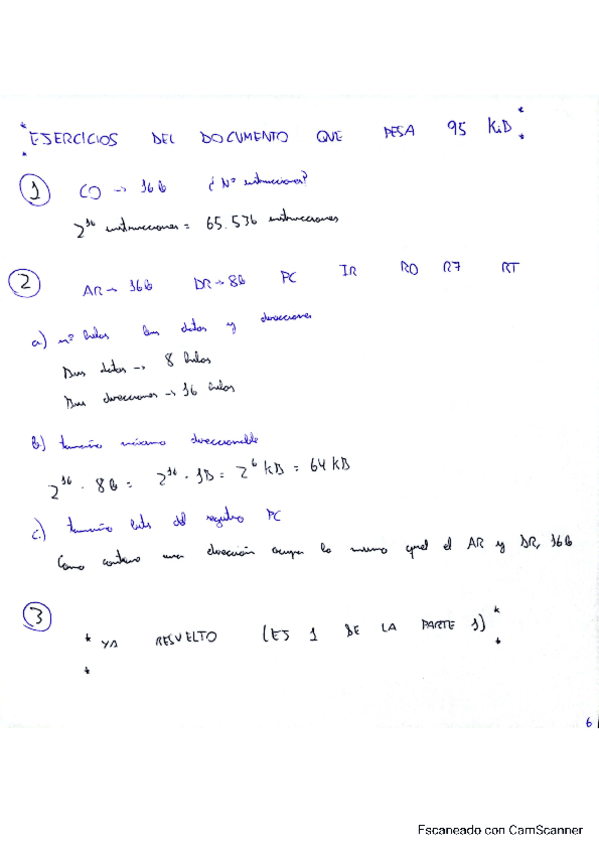 * EJERCICIOS DEL DOCUMENTO QUE PESA 95 KiB *
1 CO → 16b ¿Nº instrucciones?
2^16 instrucciones = 65.536 instrucciones
2 AR → 16b DR → 8b PC IR R0 R7 RT
a) nº hilos bus datos y direcciones
Bus datos → 8 hilos
Bus direcciones → 16 hilos
b) tamaño máximo direccionable
2^16 · 8b = 2^16 · 1B = 2^6 kB = 64 kB
c) tamaño bits del registro PC
Como contiene una dirección ocupa lo mismo que el AR y DR, 16b
3
* YA RESUELTO (ES 1 DE LA PARTE 1) *
*
6
Escaneado con CamScanner